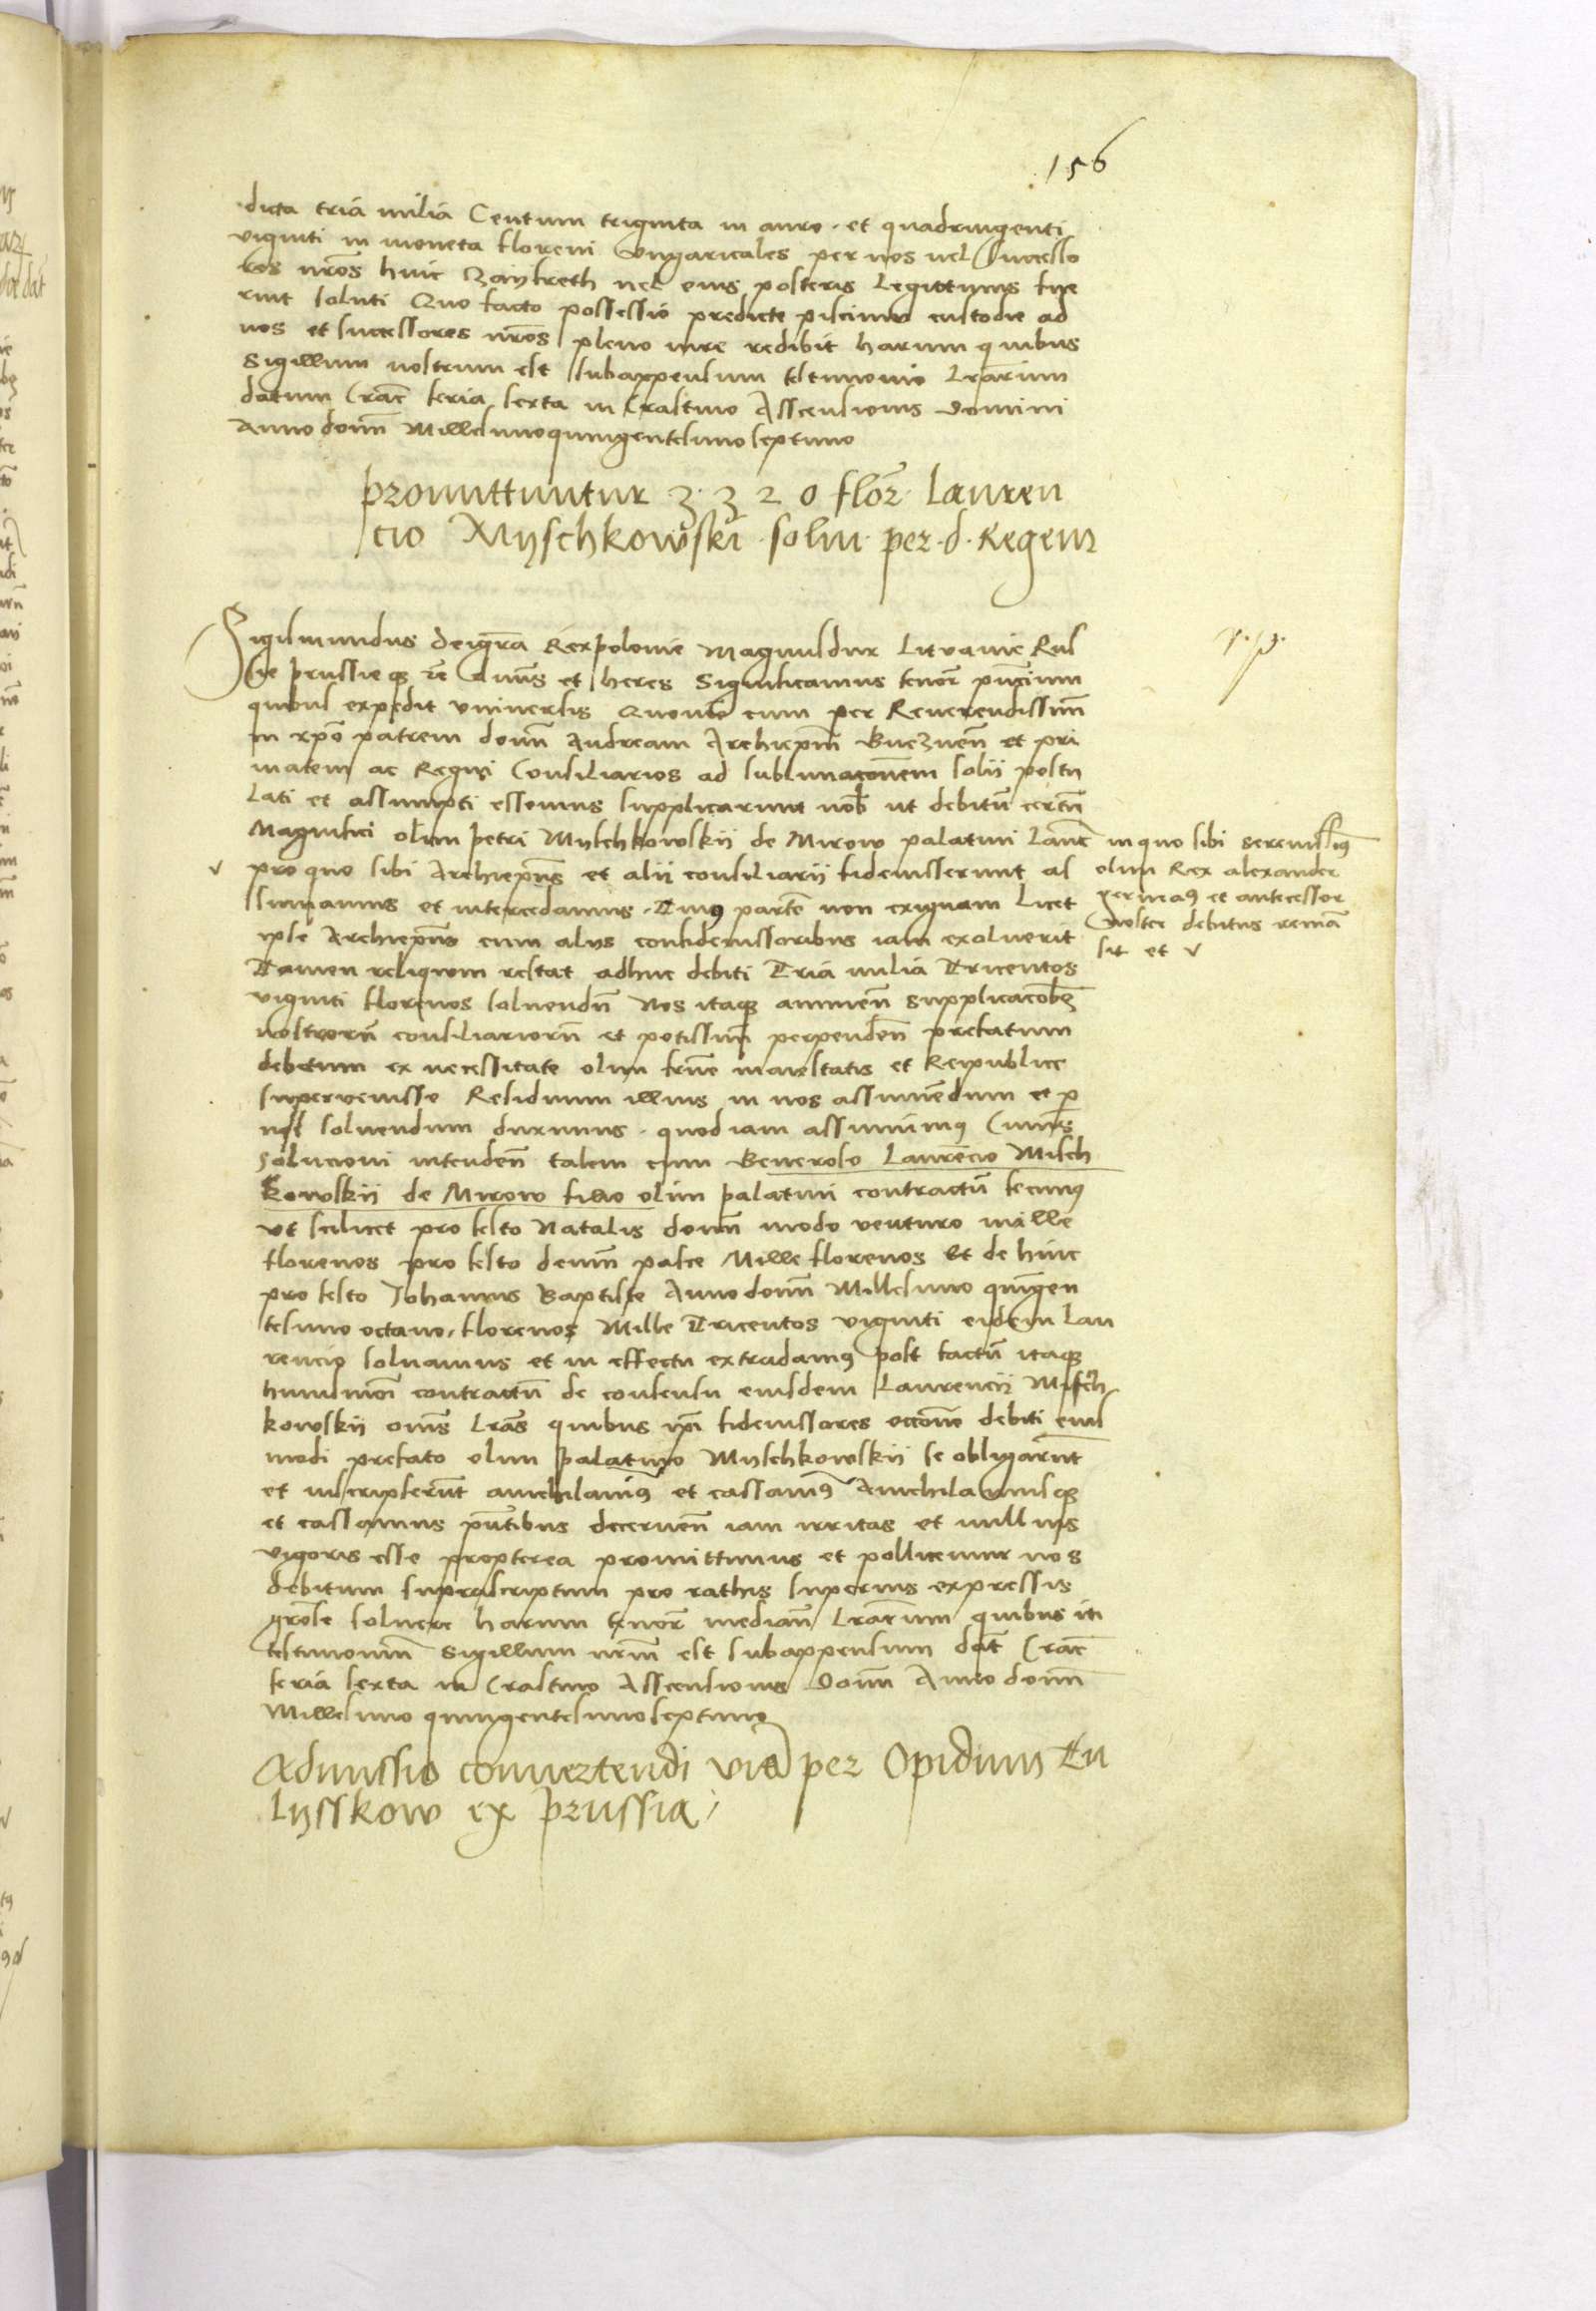 156
dicta tria milia Centum triginta in auro et quadringenti
viginti in moneta floreni Ungaricales per nos vel Successo
res nros huic Zaifreth vel eius posteris Legittimis fue
rint soluti Quo facto possessio predicte piscine custodie ad
nos et successores nros pleno iure redibit harum quibus
Sigillum nostrum est subappensum testimonio Lrarum
datum Crac feria sexta in Crastino Ascensionis Domini
Anno domi Millesimoquingentesimoseptimo
promittuntur 3320 flor Lauren
cio Myschkowski solvi per d. Regem
Sigismundus dei gra Rex polonie Magnusdux Lituanie Rus
sie prussieq zc dnus et heres Significamus tenor pncium
quibus expedit universis Quomo cum per Reverendissim
in xpo patrem domi Andream Archiepm Gneznen et pri
matem ac Regni Consiliarios ad sublimaconem solii postu
lati et assumpti essemus supplicarunt nob ut debitu certu
Magnifici olim petri Myschkowskii de Mirow palatini Lanc
pro quo sibi Archiepus et alii consiliarii fideiusserunt as
sumamus et intercedamus. Cuius parte non exiguam Licet
ipse Archiepus cum aliis confideiussoribus iam exoluerit
Tamen reliquum restat adhuc debiti Tria milia Tricentos
viginti florenos solvendu Nos itaq annuen supplicacoib
nostroru consiliarioru et potissim perpenden prefatum
debitum ex necessitate olim frne maiestatis et Reipublice
supervenisse Residuum illius in nos assumendum et p
nos solvendum duximus. quod iam assumimus Cuius
solucioni intenden talem cum Generoso Laurencio Misch
kowskii de Mirow filio olim palatini contractu fecimus
ut scilicet pro festo Natalis domi modo venturo mille
florenos pro festo demu pasce Mille florenos Et de hinc
pro festo Johannis Baptiste Anno domi Millesimo quingen
tesimo octavo, florenos Mille Tricentos viginti eidem Lau
rencio solvamus et in effectu extradamus post factu itaq
huiusmoi contractu de consensu eiusdem Laurencii Misch
kowskii omes Lras quibus ipi fideiussores occone debiti eius
modi prefato olim palatino Myschkowskii se obligarunt
et inscripserunt annichilamus et cassamus Annichilavimusq
et cassamus pntibus decernen iam irritas et nullius
vigoris esse propterea promittimus et pollicemur nos
debitum suprascriptum pro rathis superius expressis
grose solvere harum tenor median Lrarum quibus in
testimonium Sigillum nrm est subappensum dat Crac
feria sexta in Crastino Ascensionis Domi Anno domi
Millesimo quingentesimoseptimo
in quo sibi serenissius
olim Rex alexander
germanus et antecessor
noster debitus reman
sit et v
Admissio convertendi via per Opidum Tu
lysskow ex prussia